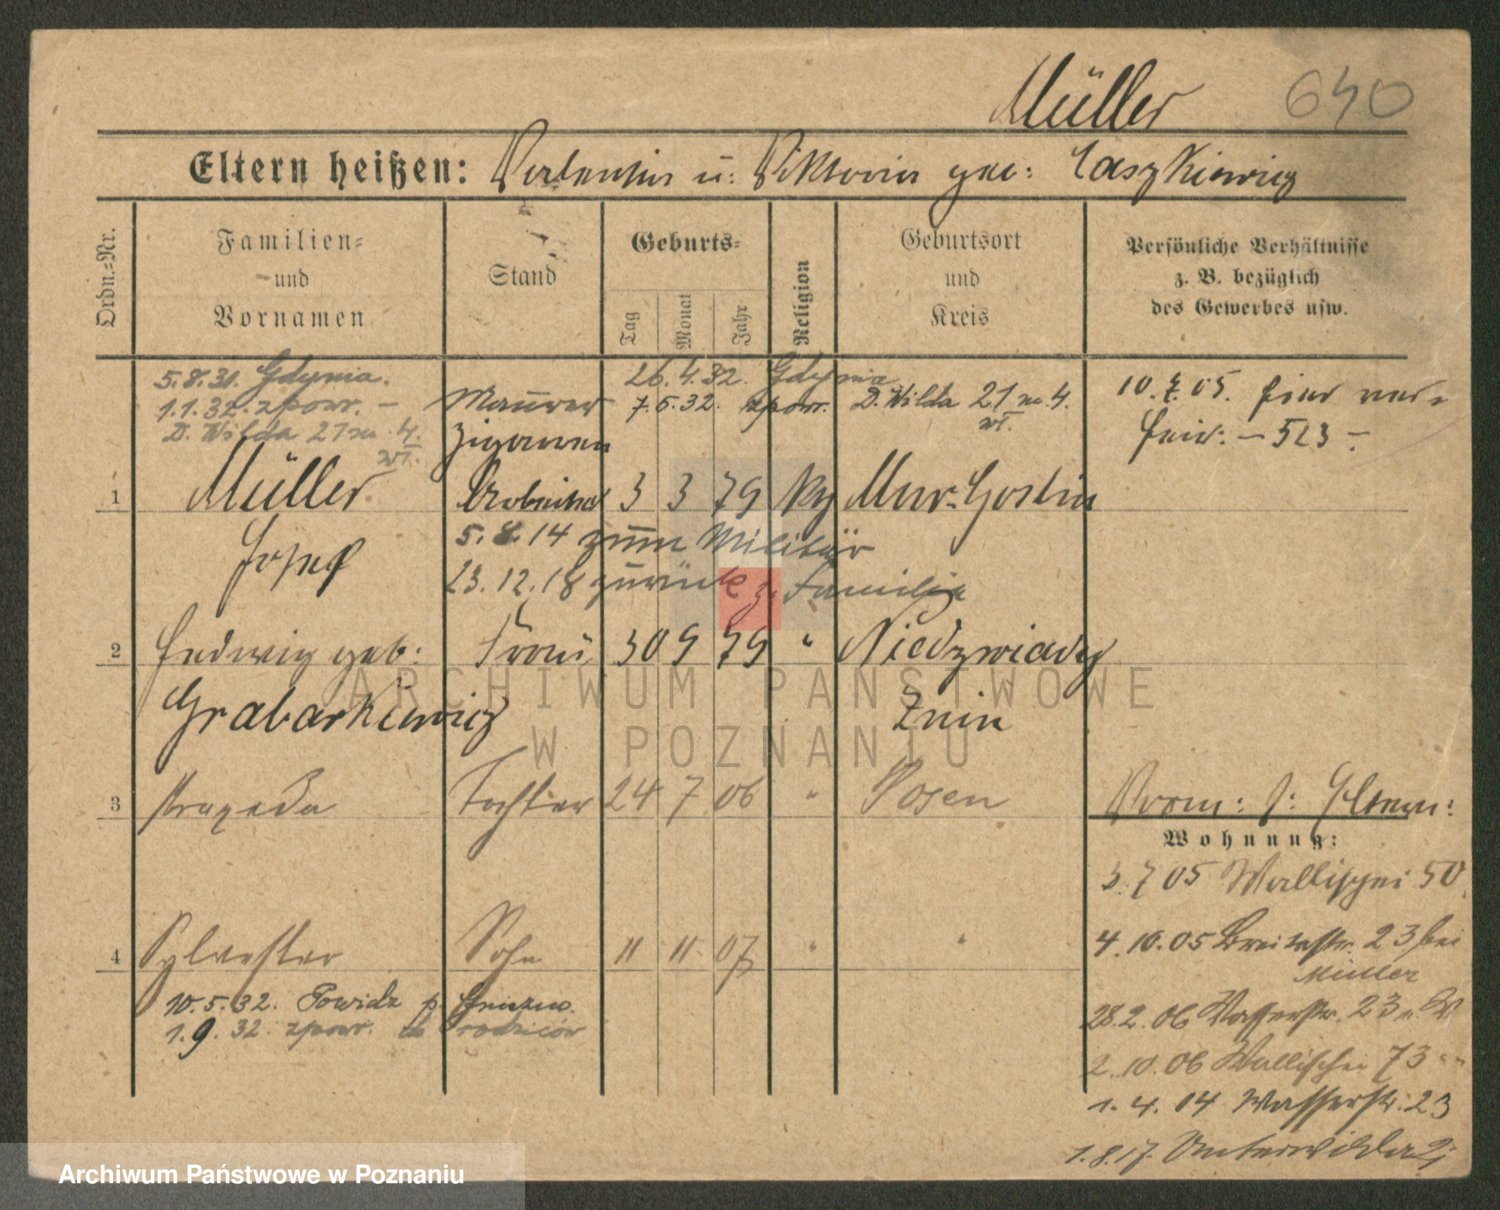 Müller 640
Eltern heißen: Valentin u: Viktoria geb: Laszkiewicz
Ordn.-Nr.
Familien- und Vornamen
Stand
Geburts-
Tag
Monat
Jahr
Religion
Geburtsort und Kreis
Persönliche Verhältnisse
z. B. bezüglich
des Gewerbes usw.
5.8.31. Gdynia. 26.4.32. Gdynia
1.1.32. zpow. - Maurer 7.5.32. zpow. D. Wilda 21 m. 4.
D. Wilda 21 m. 4. Zigarren
10. 05. hier ver-
heir: - 523 -
1 Müller Arbeiter 3 3 79 Mur. Goslin
Josef
5.8.14 zum Militär
23.12.18 zurück z. Familie
2 Hedwig geb: Frau 30 9 79 " Niedzwiady
Grabarkiewicz Znin
3 Praxeda Tochter 24 7 06 " Posen
Vorm: s: Eltern:
Wohnung:
3.7 05 Wallischei 50
4 Sylvester Sohn 11 11 07 " "
4.10.05 Breitestr. 23 bei
Müller
10.5.32. Powidz p. Gniezno.
1.9.32. zpow. do rodziców
28.2.06 Wasserstr. 23
2.10.06 Wallischei 73
1.4.04 Wasserstr. 23
1.8.17 Unterwilda
ARCHIWUM PAŃSTWOWE
W POZNANIU
Archiwum Państwowe w Poznaniu